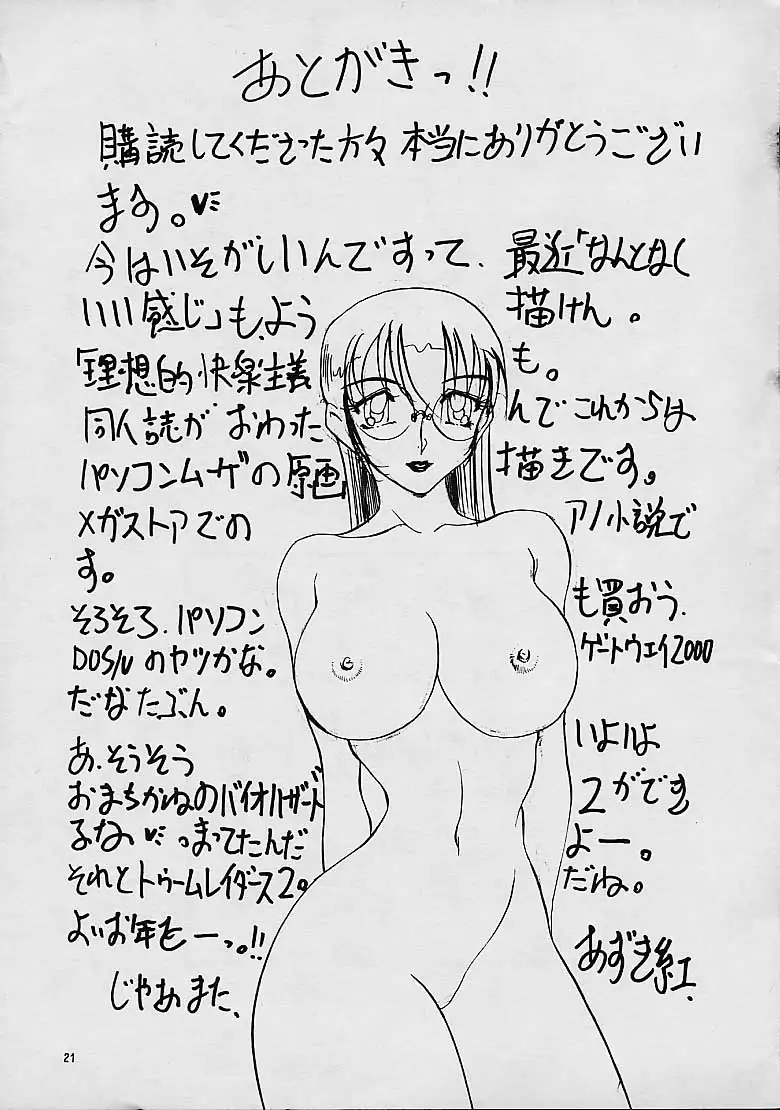 あとがきっ!!
購読してくださった方々 本当にありがとうござい
ます。
今はいそがしいんですって、最近「なんとなく
いい感じ」も、よう 描けん。
「理想的快楽主義 も。
同人誌が おわった んでこれからは
パソコンムサの原画 描きです。
メガストアでの アノ小説で
す。
そろそろ、パソコン も買おう、
DOS/Vのヤツかな。 ゲートウェイ2000
だなたぶん。
あ、そうそう いよいよ
おまちかねのバイオハザード 2ができ
るなぁ まってたんだ よー。
それとトゥームレイダース2。 だね。
よいお年をーっ。!!
じゃあまた、 あずき紅、
21